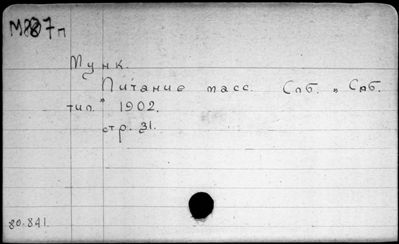 Мунк.
Питание масс. Спб. „ Спб.
тип." 1902.
стр. 31.
80.841.